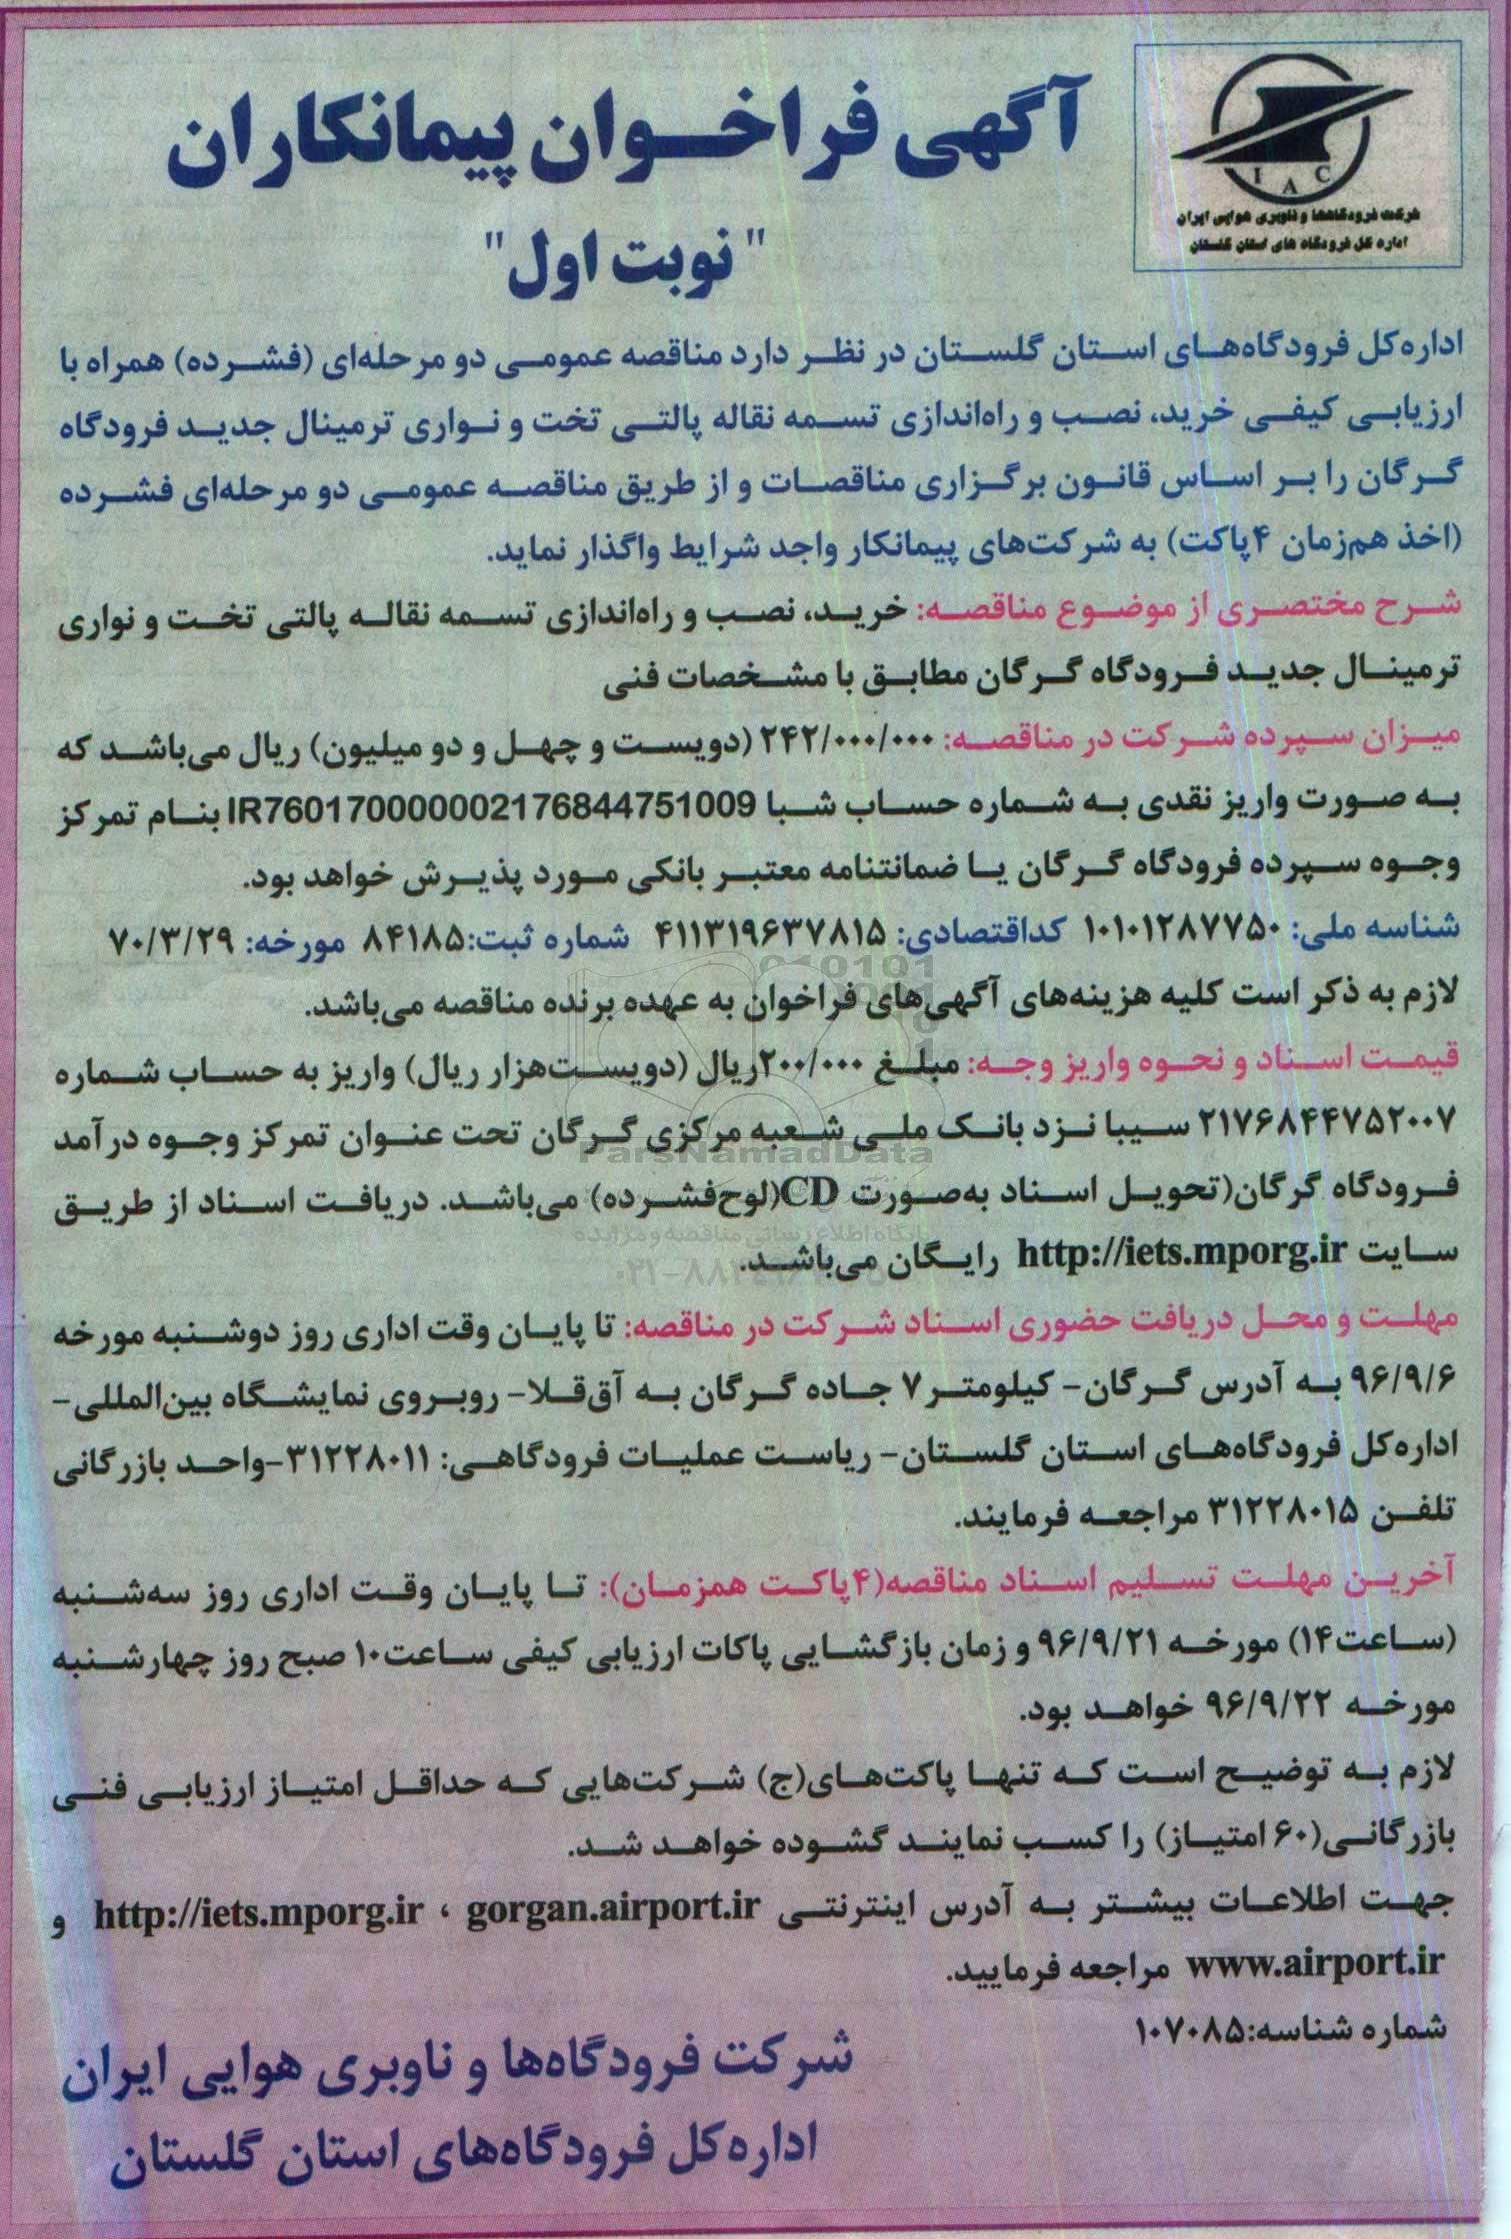 آگهی فراخوان پیمانکاران
"نوبت اول"
I A C
شرکت فرودگاهها و ناوبری هوایی ایران
اداره کل فرودگاه های استان گلستان
اداره‌کل فرودگاه‌های استان گلستان در نظر دارد مناقصه عمومی دو مرحله‌ای (فشرده) همراه با
ارزیابی کیفی خرید، نصب و راه‌اندازی تسمه نقاله پالتی تخت و نواری ترمینال جدید فرودگاه
گرگان را بر اساس قانون برگزاری مناقصات و از طریق مناقصه عمومی دو مرحله‌ای فشرده
(اخذ هم‌زمان ۴پاکت) به شرکت‌های پیمانکار واجد شرایط واگذار نماید.
شرح مختصری از موضوع مناقصه: خرید، نصب و راه‌اندازی تسمه نقاله پالتی تخت و نواری
ترمینال جدید فرودگاه گرگان مطابق با مشخصات فنی
میزان سپرده شرکت در مناقصه: ۲۴۲/۰۰۰/۰۰۰ (دویست و چهل و دو میلیون) ریال می‌باشد که
به صورت واریز نقدی به شماره حساب شبا IR760170000002176844751009 بنام تمرکز
وجوه سپرده فرودگاه گرگان یا ضمانتنامه معتبر بانکی مورد پذیرش خواهد بود.
شناسه ملی: ۱۰۱۰۱۲۸۷۷۵۰ کداقتصادی: ۴۱۱۳۱۹۶۳۷۸۱۵ شماره ثبت:۸۴۱۸۵ مورخه: ۷۰/۳/۲۹
لازم به ذکر است کلیه هزینه‌های آگهی‌های فراخوان به عهده برنده مناقصه می‌باشد.
قیمت اسناد و نحوه واریز وجه: مبلغ ۲۰۰/۰۰۰ریال (دویست‌هزار ریال) واریز به حساب شماره
۲۱۷۶۸۴۴۷۵۲۰۰۷ سیبا نزد بانک ملی شعبه مرکزی گرگان تحت عنوان تمرکز وجوه درآمد
فرودگاه گرگان(تحویل اسناد به‌صورت CD(لوح‌فشرده) می‌باشد. دریافت اسناد از طریق
سایت http://iets.mporg.ir رایگان می‌باشد.
مهلت و محل دریافت حضوری اسناد شرکت در مناقصه: تا پایان وقت اداری روز دوشنبه مورخه
۹۶/۹/۶ به آدرس گرگان- کیلومتر ۷ جاده گرگان به آق‌قلا- روبروی نمایشگاه بین‌المللی-
اداره‌کل فرودگاه‌های استان گلستان- ریاست عملیات فرودگاهی: ۳۱۲۲۸۰۱۱-واحد بازرگانی
تلفن ۳۱۲۲۸۰۱۵ مراجعه فرمایند.
آخرین مهلت تسلیم اسناد مناقصه(۴پاکت همزمان): تا پایان وقت اداری روز سه‌شنبه
(ساعت۱۴) مورخه ۹۶/۹/۲۱ و زمان بازگشایی پاکات ارزیابی کیفی ساعت۱۰ صبح روز چهارشنبه
مورخه ۹۶/۹/۲۲ خواهد بود.
لازم به توضیح است که تنها پاکت‌های(ج) شرکت‌هایی که حداقل امتیاز ارزیابی فنی
بازرگانی(۶۰ امتیاز) را کسب نمایند گشوده خواهد شد.
جهت اطلاعات بیشتر به آدرس اینترنتی http://iets.mporg.ir ، gorgan.airport.ir و
www.airport.ir مراجعه فرمایید.
شماره شناسه:۱۰۷۰۸۵
شرکت فرودگاه‌ها و ناوبری هوایی ایران
اداره‌کل فرودگاه‌های استان گلستان
ParsNamadData